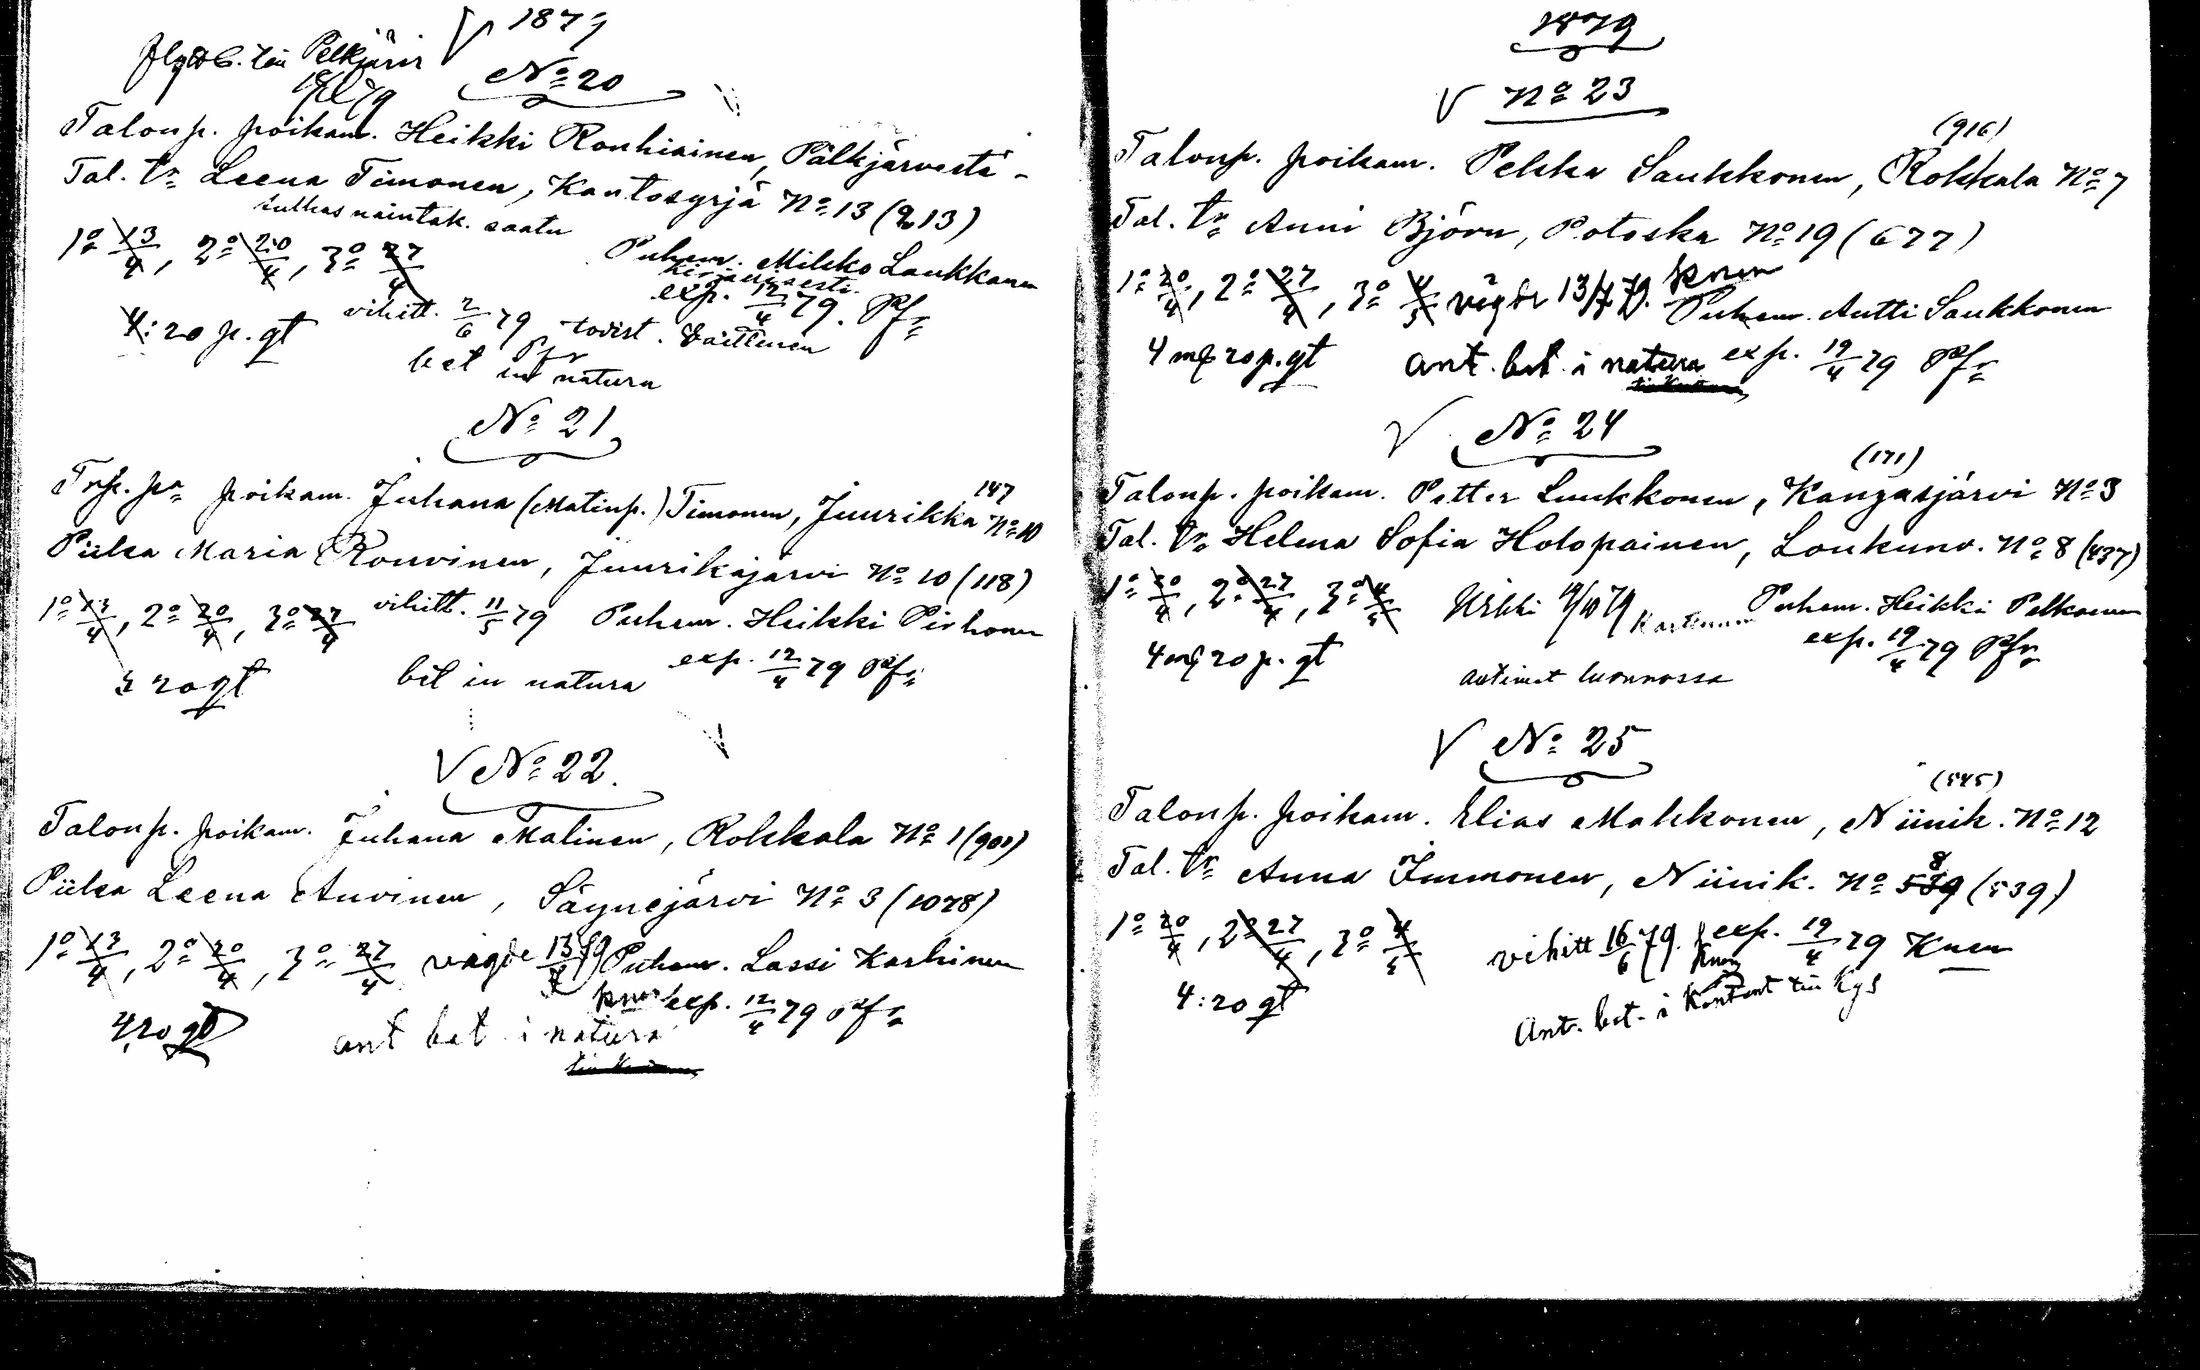 1879
till Pelkjärvi
No 20
Talonp. poikam. Heikki Ronkiainen, Pälkjärvestä
Tal. tr. Leena Timonen, Kontosyrjä No 13 (213)
sulhas naintak. saatu
1o 13/4, 2o 20/4, 3o 27/4
Puhem. Mikko Laukkanen
kirjallisesti
exp. 12/4 79. Pfr
4:20 p. gt vihitt. 2/6 79 todist. Vaittinen Pfr
bet in natura
No 21
poikam. Juhana (Matinp.) Timonen, Juurikka No 10 147
Piika Maria Rouvinen, Juurikajärvi No 10 (118)
1o 13/4, 2o 20/4, 3o 27/4 vihitt. 11/5 79 Puhem. Heikki Pirhonen
20 gt bet in natura exp. 12/4 79 Pfr
No 22.
Talonp. poikam. Juhana Malinen, Rokkala No 1 (900)
Piika Leena Auvinen, Säynejärvi No 3 (1078)
1o 13/4, 2o 20/4, 3o 27/4 vigde 13/ 79 Puhem. Lassi Karhinen
knen exp. 12/4 79 Pfr
4,20 gt ant bet i natura
1879
No 23
(916)
Talonp. poikam. Pekka Saukkonen, Rokkala No 7
Tal. tr. Anni Björn, Potoska No 19 (677)
1o 20/4, 2o 27/4, 3o 4/5 vigde 13/7 79. knen
Puhem. Antti Saukkonen
4 mk 20 p. gt ant. bet. i natura exp. 19/4 79 Pfr
No 24
(171)
Talonp. poikam. Petter Luukkonen, Kangasjärvi No 3
Tal. tr. Helena Sofia Holopainen, Loukunv. No 8 (437)
1o 20/4, 2o 27/4, 3o 4/5 Vihki 19/10 79 Puhem. Heikki Pelkonen
exp. 19/4 79 Pfr
4 mk 20 p. gt
antimet luonnossa
No 25
(545)
Talonp. poikam. Elias Makkonen, Niinik. No 12
Tal. tr. Anna Immonen, Niinik. No 8 539 (539)
1o 20/4, 2o 27/4, 3o 4/5 vihitt 16/6 79. knen exp. 19/4 79 Knen
4:20 gt
Ant. bet. i Kontant till Kgs